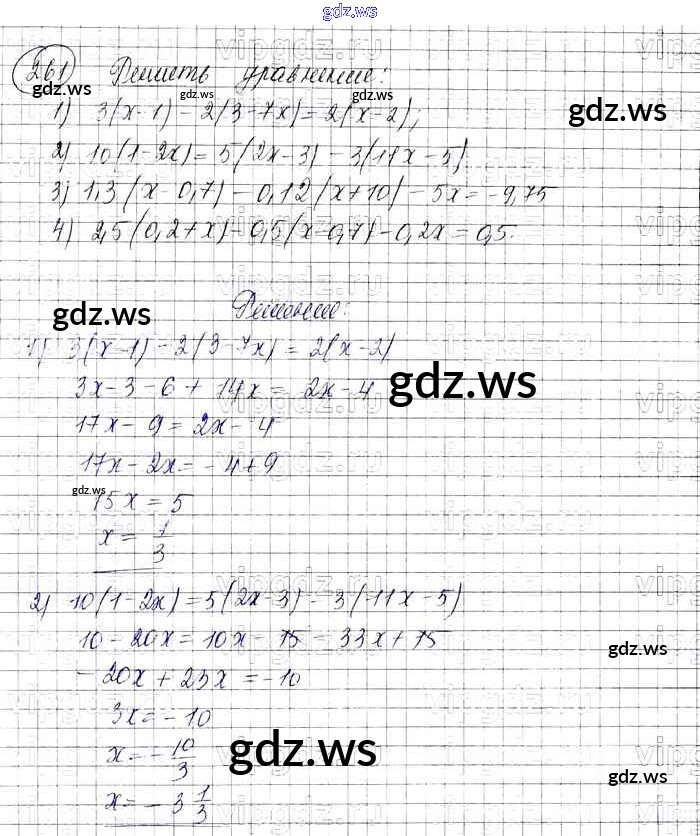 gdz.ws
261 Решить уравнение:
1) 3(x-1) - 2(3-7x) = 2(x-2);
2) 10(1-2x) = 5(2x-3) - 3(11x-5)
3) 1,3(x-0,7) - 0,12(x+10) - 5x = -9,75
4) 2,5(0,2+x) - 0,5(x-0,7) - 0,2x = 0,5.
Решение:
1) 3(x-1) - 2(3-7x) = 2(x-2)
3x - 3 - 6 + 14x = 2x - 4
17x - 9 = 2x - 4
17x - 2x = -4 + 9
15x = 5
x = 1/3
2) 10(1-2x) = 5(2x-3) - 3(11x-5)
10 - 20x = 10x - 15 - 33x + 15
-20x + 23x = -10
3x = -10
x = -10/3
x = -3 1/3
gdz.ws
gdz.ws
gdz.ws
gdz.ws
gdz.ws
gdz.ws
gdz.ws
gdz.ws
gdz.ws
gdz.ws
vipgdz.ru